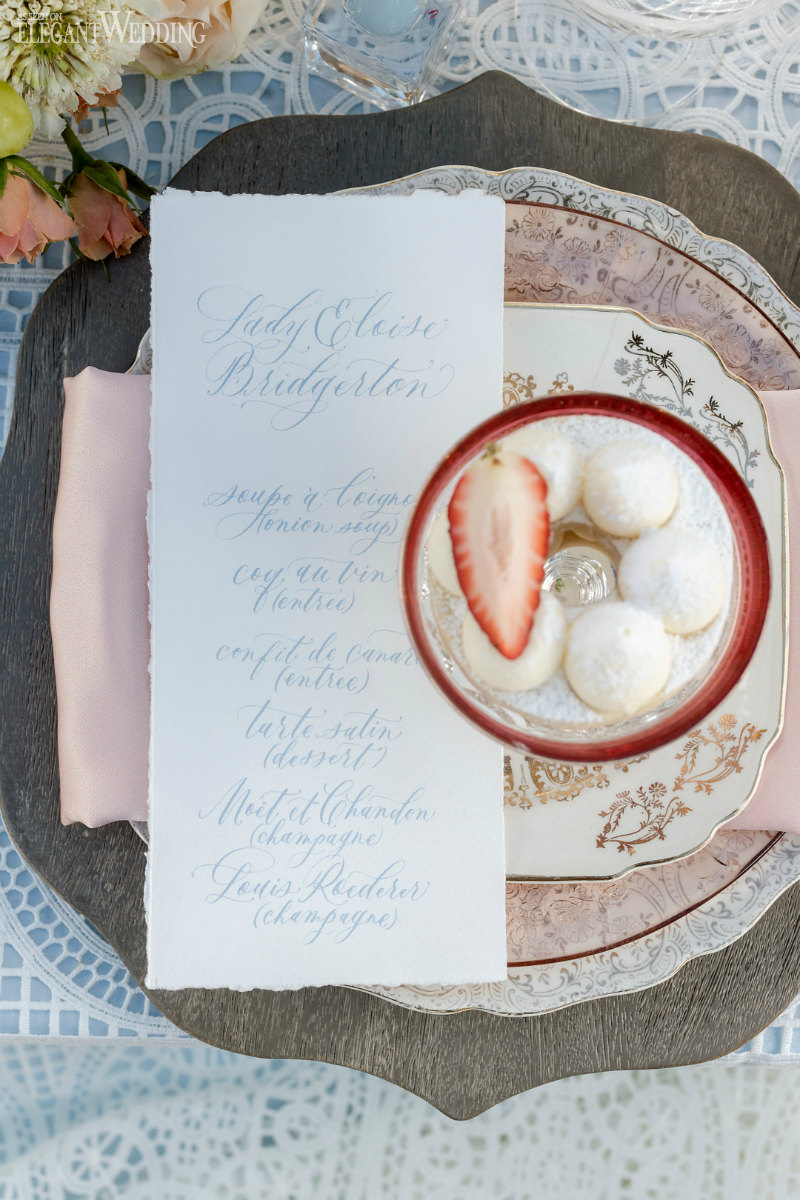 AS SEEN ON
ELEGANTWEDDING
Lady Eloise
Bridgerton
soupe à l'oigno
(onion soup)
coq au vin
(entrée)
confit de canar
(entrée)
tarte satin
(dessert)
Moët et Chandon
(champagne)
Louis Roederer
(champagne)